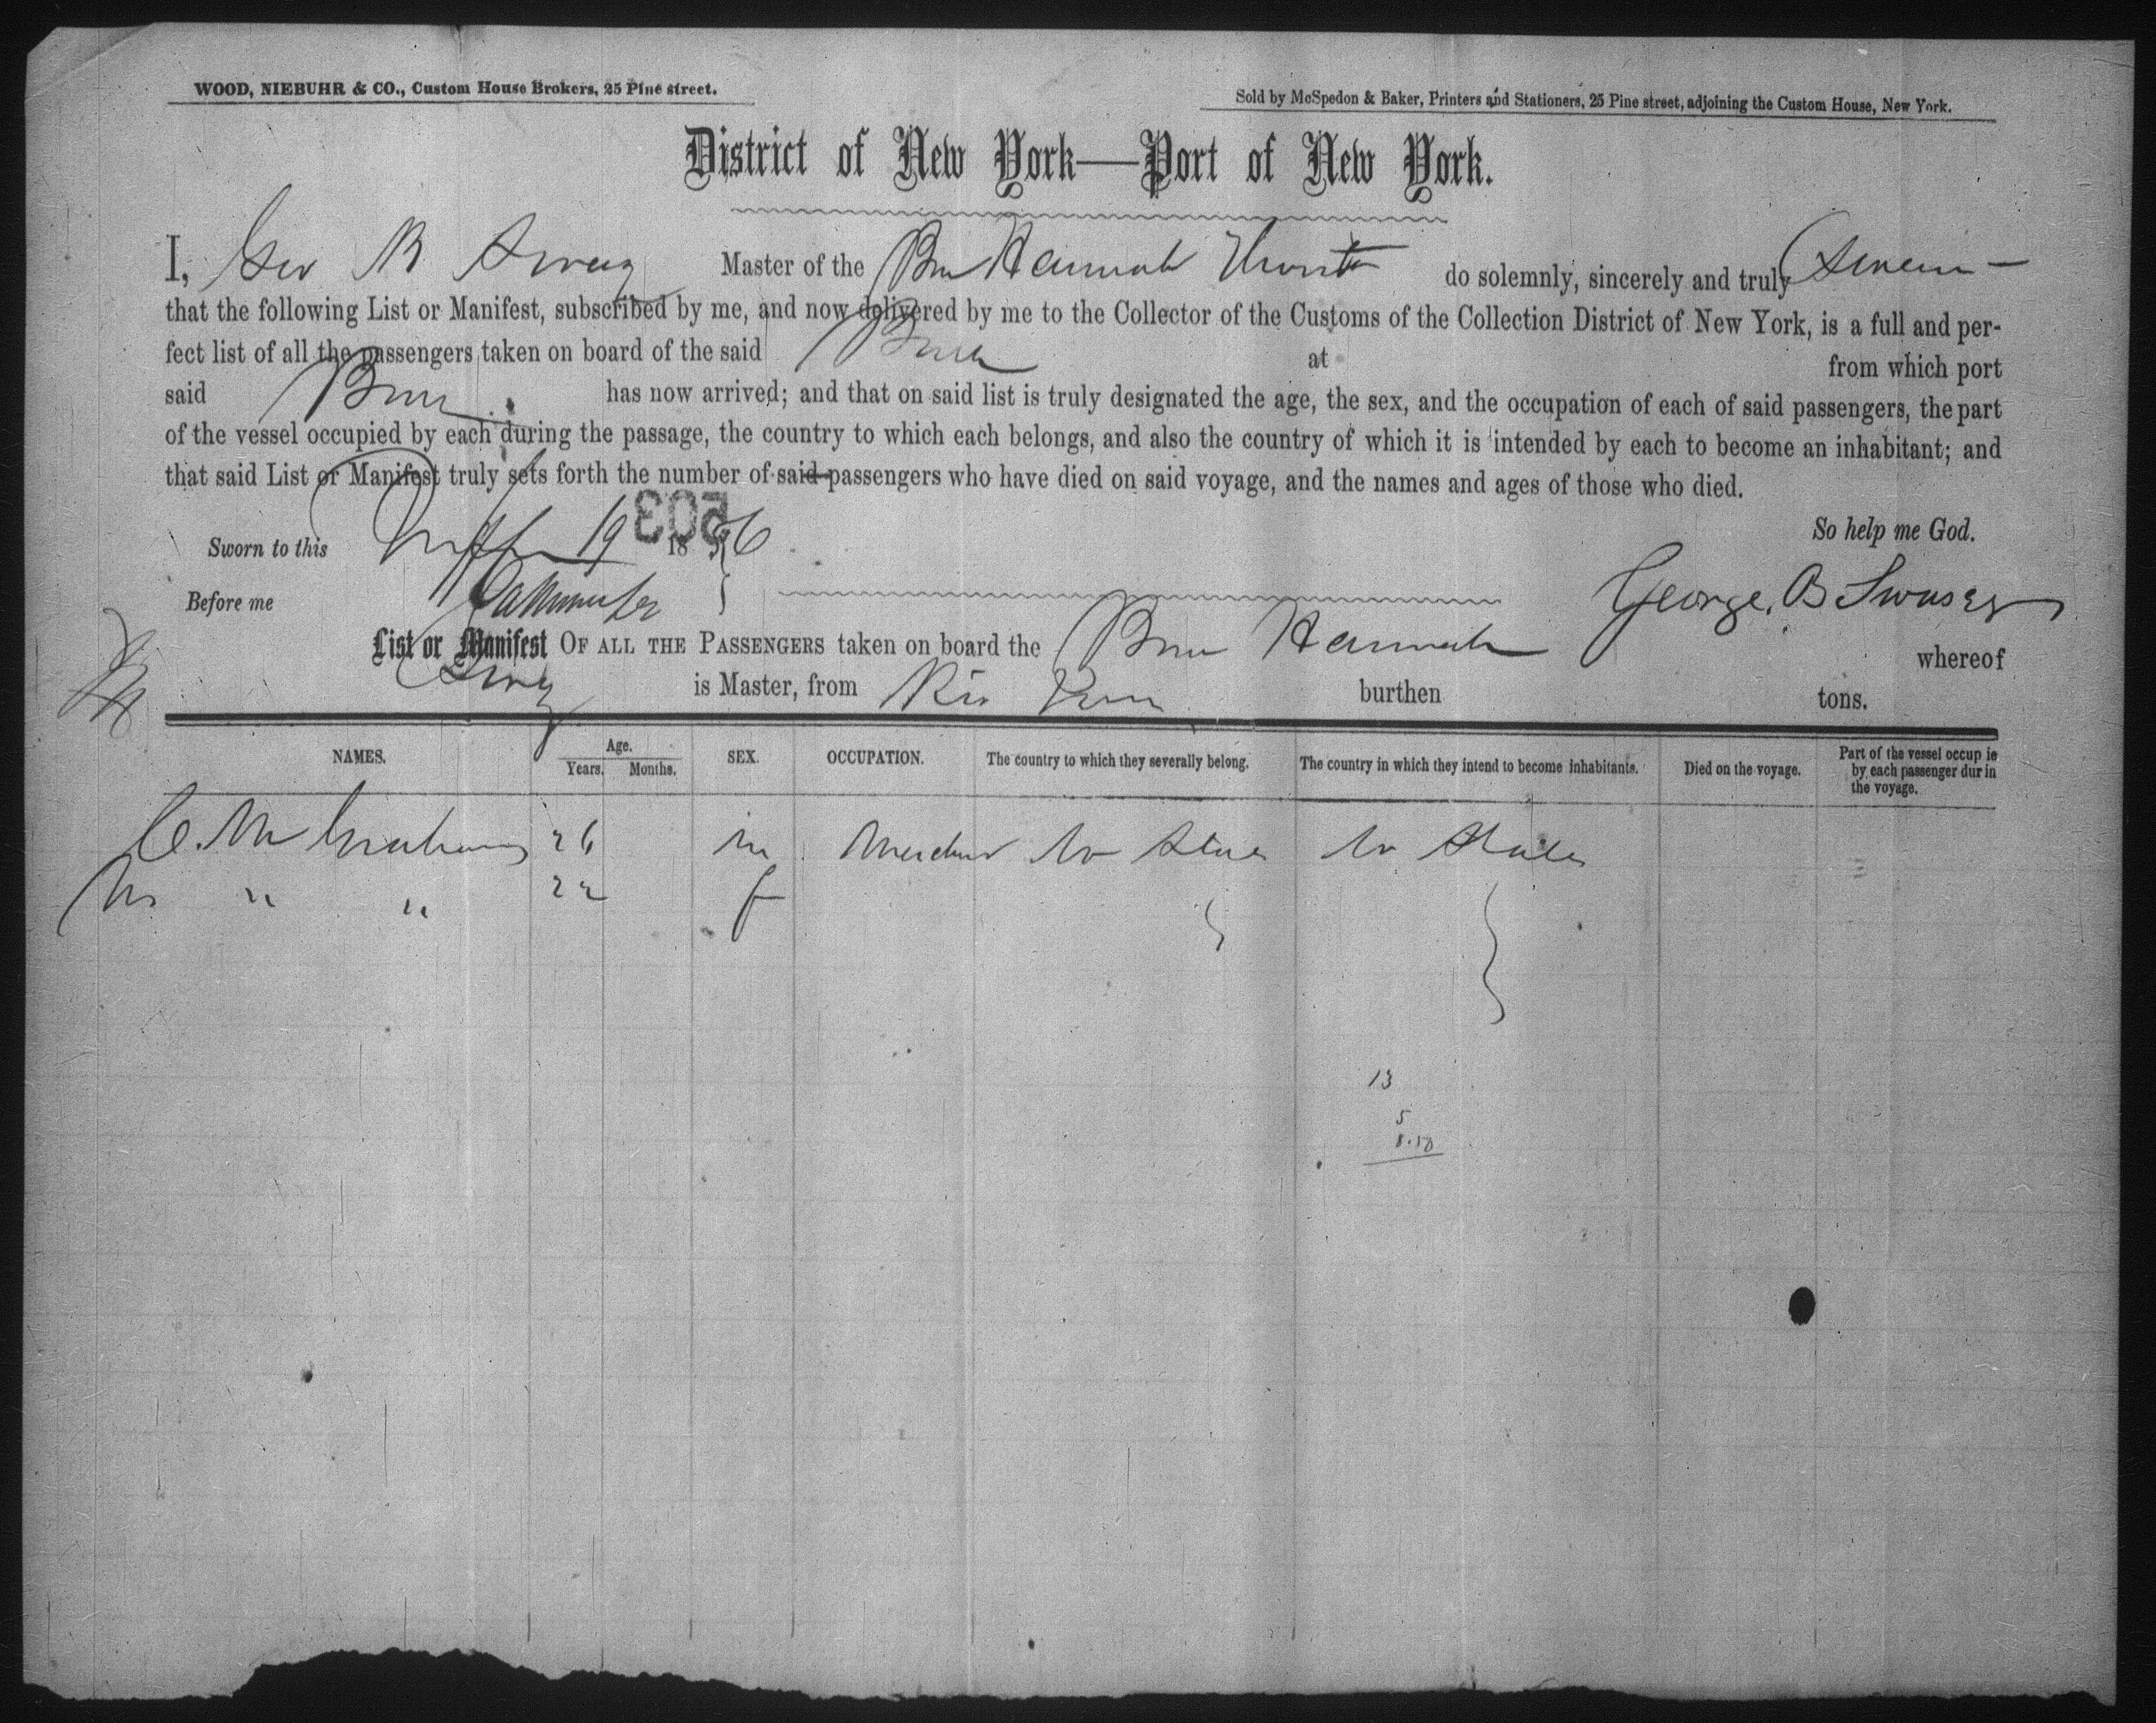 WOOD, NIEBUHR & CO., Custom House Brokers, 25 Pine street.
Sold by McSpedon & Baker, Printers and Stationers, 25 Pine street, adjoining the Custom House, New York.
District of New York—Port of New York.
I, Geo B Master of the Hannah do solemnly, sincerely and truly
that the following List or Manifest, subscribed by me, and now delivered by me to the Collector of the Customs of the Collection District of New York, is a full and per-
fect list of all the passengers taken on board of the said at from which port
said has now arrived; and that on said list is truly designated the age, the sex, and the occupation of each of said passengers, the part
of the vessel occupied by each during the passage, the country to which each belongs, and also the country of which it is intended by each to become an inhabitant; and
that said List or Manifest truly sets forth the number of said passengers who have died on said voyage, and the names and ages of those who died.
So help me God.
Sworn to this 19 1856
503
Before me
George. B Swasey
List or Manifest OF ALL THE PASSENGERS taken on board the Hannah whereof
is Master, from Rio burthen tons.
NAMES. Age. Years. Months. SEX. OCCUPATION. The country to which they severally belong. The country in which they intend to become inhabitants. Died on the voyage. Part of the vessel occup ie by each passenger dur in the voyage.
C. M 26 m States States
" " 22 f
13
5